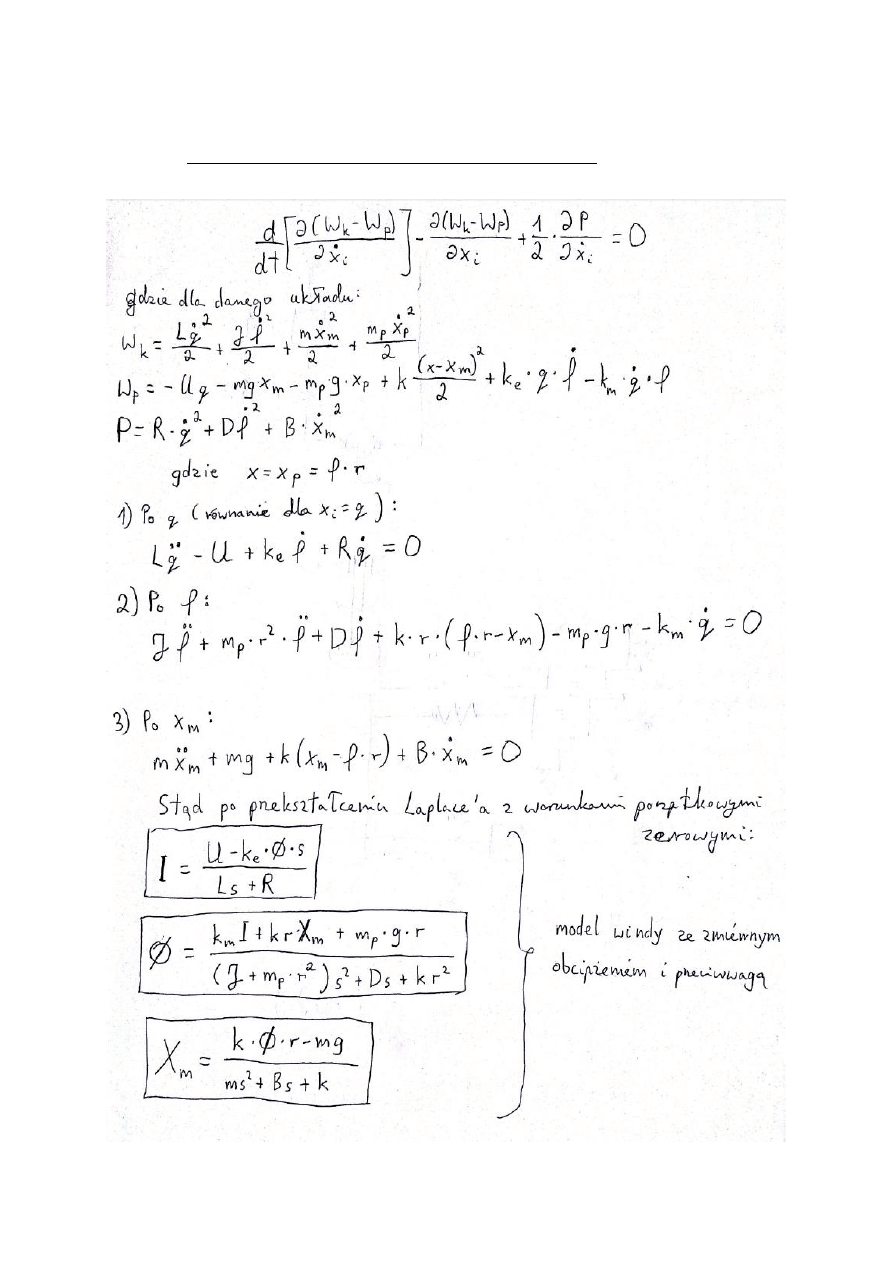 d/dt [∂(Wk-Wp)/∂ẋi] - ∂(Wk-Wp)/∂xi + 1/2 · ∂P/∂ẋi = 0
gdzie dla danego układu:
Wk = Lq̇²/2 + Jρ̇²/2 + mẋm²/2 + mp ẋp²/2
Wp = - Uq - mg xm - mp·g·xp + k (x-xm)²/2 + ke·q·ρ̇ - km·q̇·ρ
P = R·q̇² + Dρ̇² + B·ẋm²
gdzie x = xp = ρ·r
1) Po q (równanie dla xi = q):
Lq̈ - U + ke ρ̇ + Rq̇ = 0
2) Po ρ:
Jρ̈ + mp·r²·ρ̈ + Dρ̇ + k·r·(ρ·r-xm) - mp·g·r - km·q̇ = 0
3) Po xm:
mẍm + mg + k(xm-ρ·r) + B·ẋm = 0
Stąd po przekształceniu Laplace'a z warunkami początkowymi
zerowymi:
I = (U - ke·Ø·s)/(Ls + R)
Ø = (km I + kr·Xm + mp·g·r)/((J + mp·r²)s² + Ds + kr²)
model windy ze zmiennym
obciążeniem i przeciwwagą
Xm = (k·Ø·r - mg)/(ms² + Bs + k)